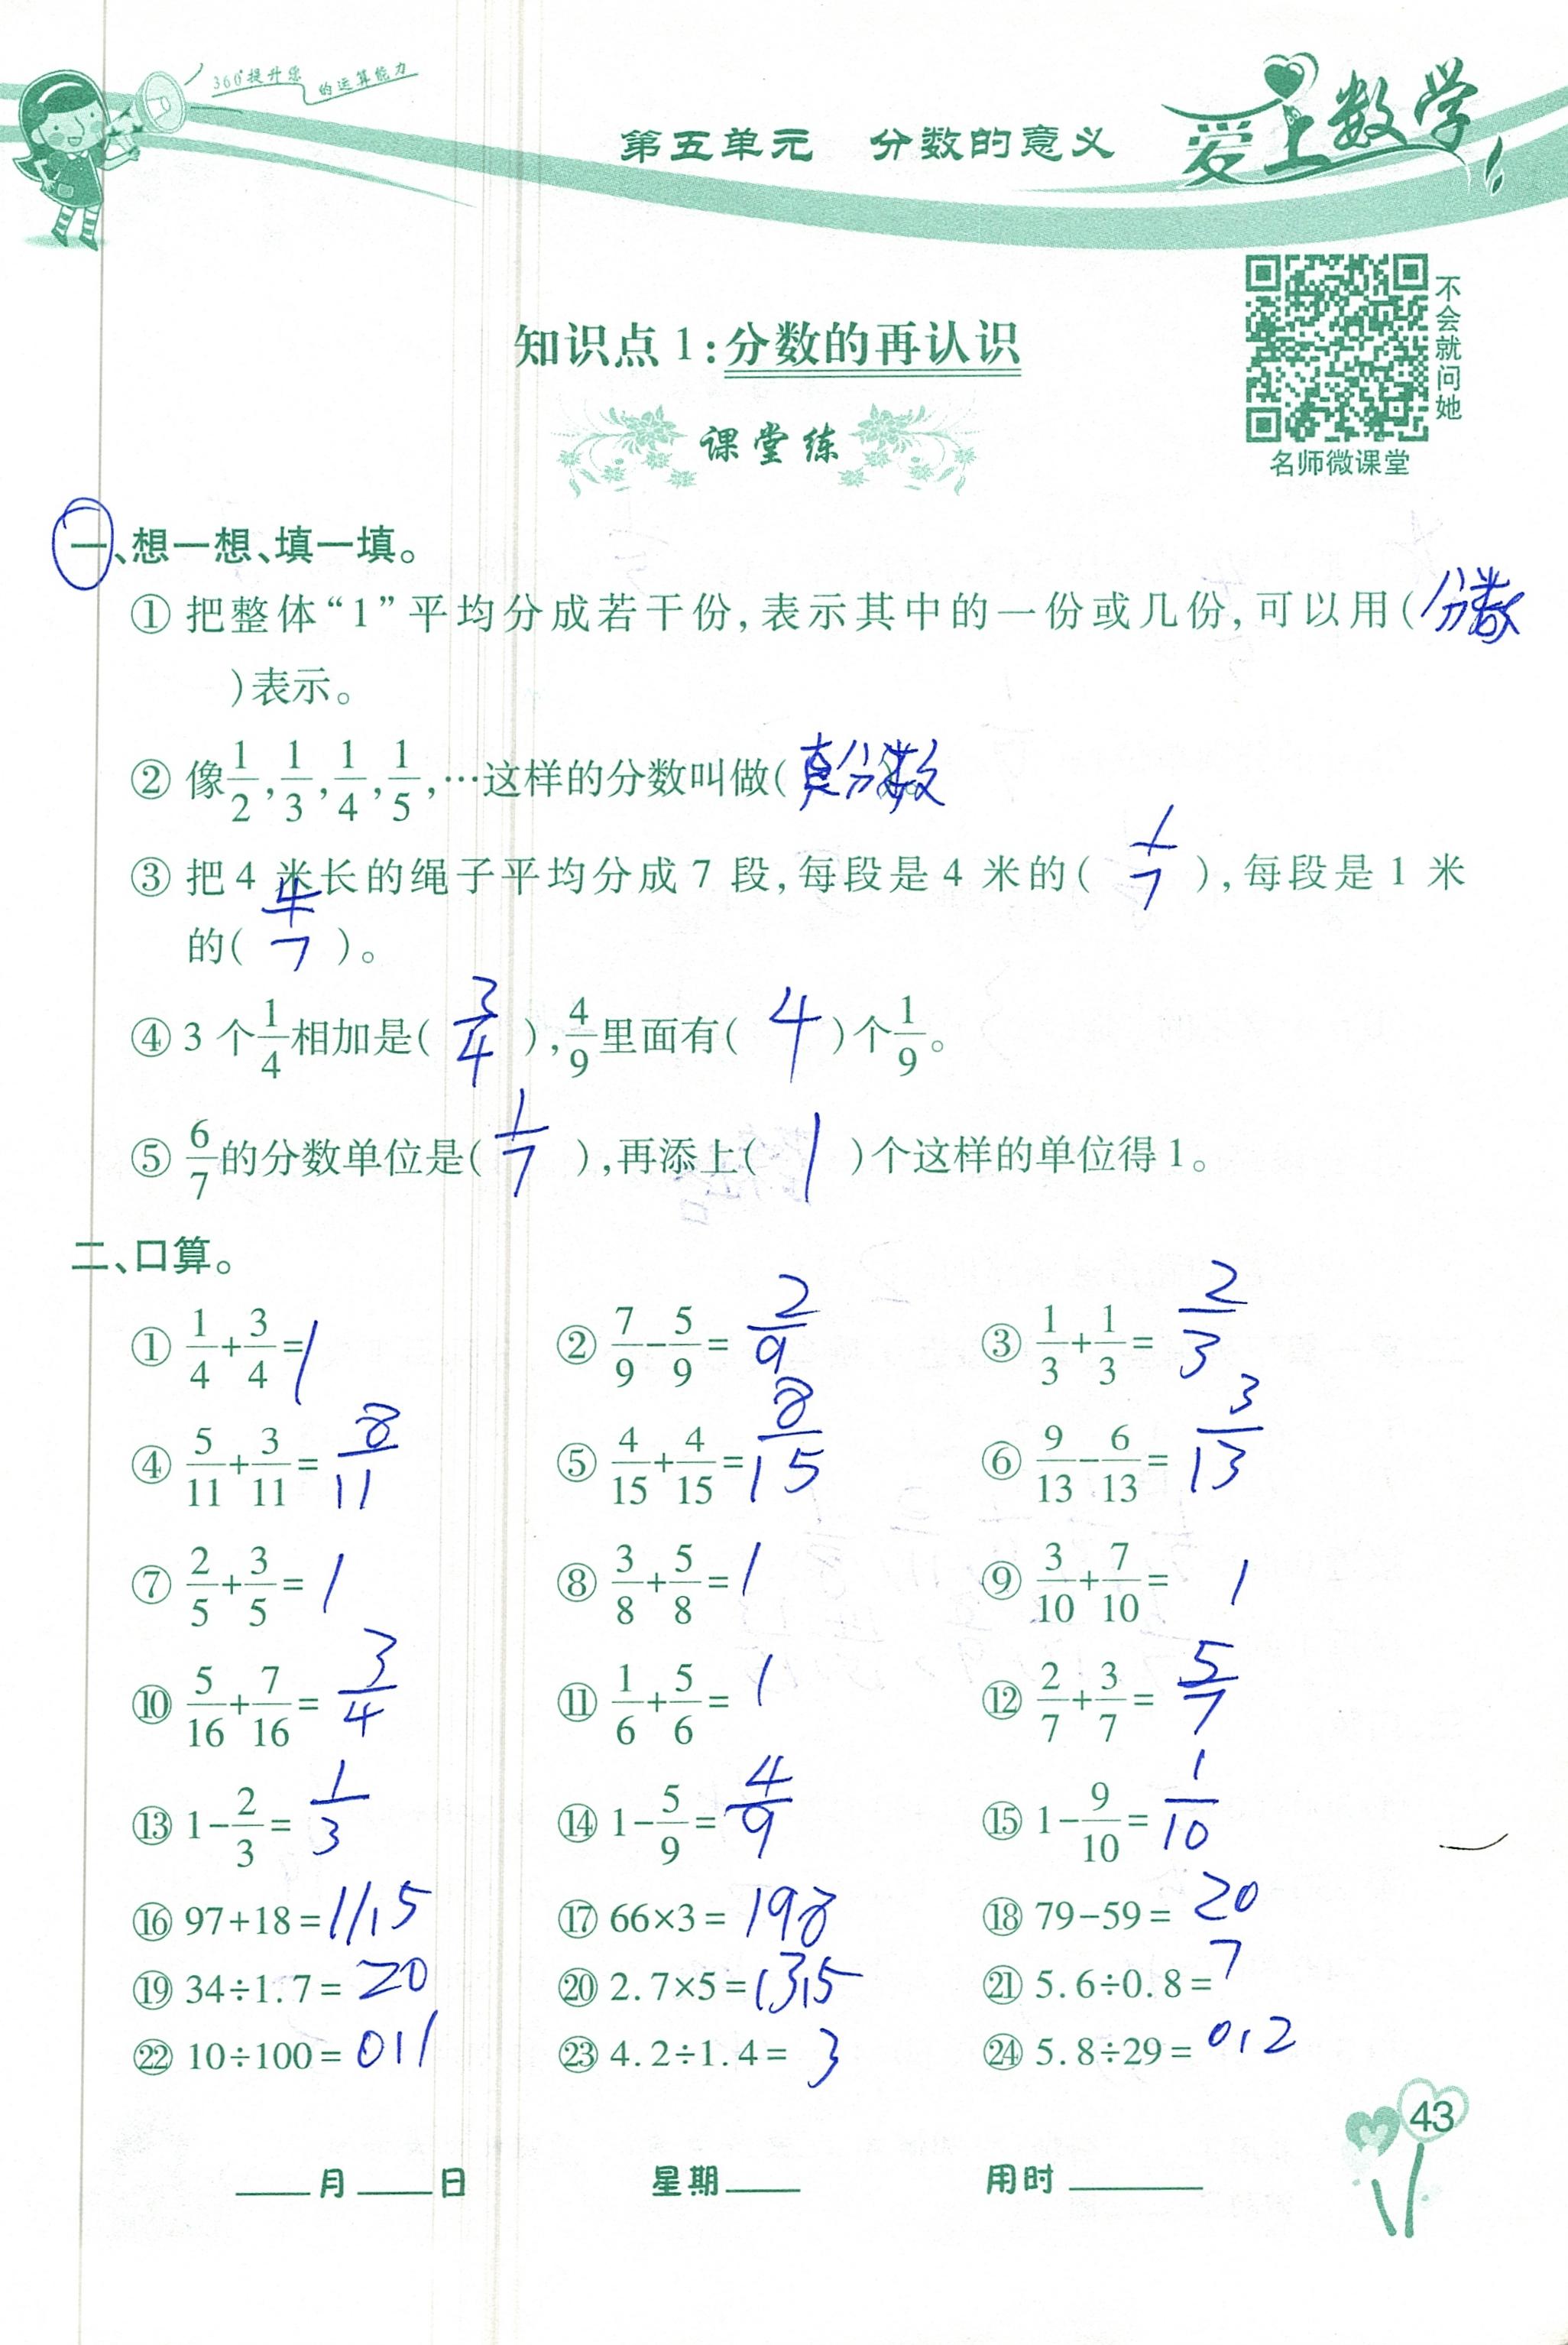 360°提升您的运算能力
第五单元 分数的意义 爱上数学
不会就问她
名师微课堂
知识点1:分数的再认识
课堂练
一、想一想、填一填。
① 把整体“1”平均分成若干份,表示其中的一份或几份,可以用(分数
)表示。
② 像1/2,1/3,1/4,1/5,…这样的分数叫做(真分数
③ 把4米长的绳子平均分成7段,每段是4米的(1/7),每段是1米
的(4/7)。
④ 3个1/4相加是(3/4),4/9里面有(4)个1/9。
⑤ 6/7的分数单位是(1/7),再添上(1)个这样的单位得1。
二、口算。
① 1/4+3/4=1 ② 7/9-5/9=2/9 ③ 1/3+1/3=2/3
④ 5/11+3/11=8/11 ⑤ 4/15+4/15=8/15 ⑥ 9/13-6/13=3/13
⑦ 2/5+3/5=1 ⑧ 3/8+5/8=1 ⑨ 3/10+7/10=1
⑩ 5/16+7/16=3/4 ⑪ 1/6+5/6=1 ⑫ 2/7+3/7=5/7
⑬ 1-2/3=1/3 ⑭ 1-5/9=4/9 ⑮ 1-9/10=1/10
⑯ 97+18=11.5 ⑰ 66×3=198 ⑱ 79-59=20
⑲ 34÷1.7=20 ⑳ 2.7×5=13.5 ㉑ 5.6÷0.8=7
㉒ 10÷100=0.1 ㉓ 4.2÷1.4=3 ㉔ 5.8÷29=0.2
43
____月____日 星期____ 用时______